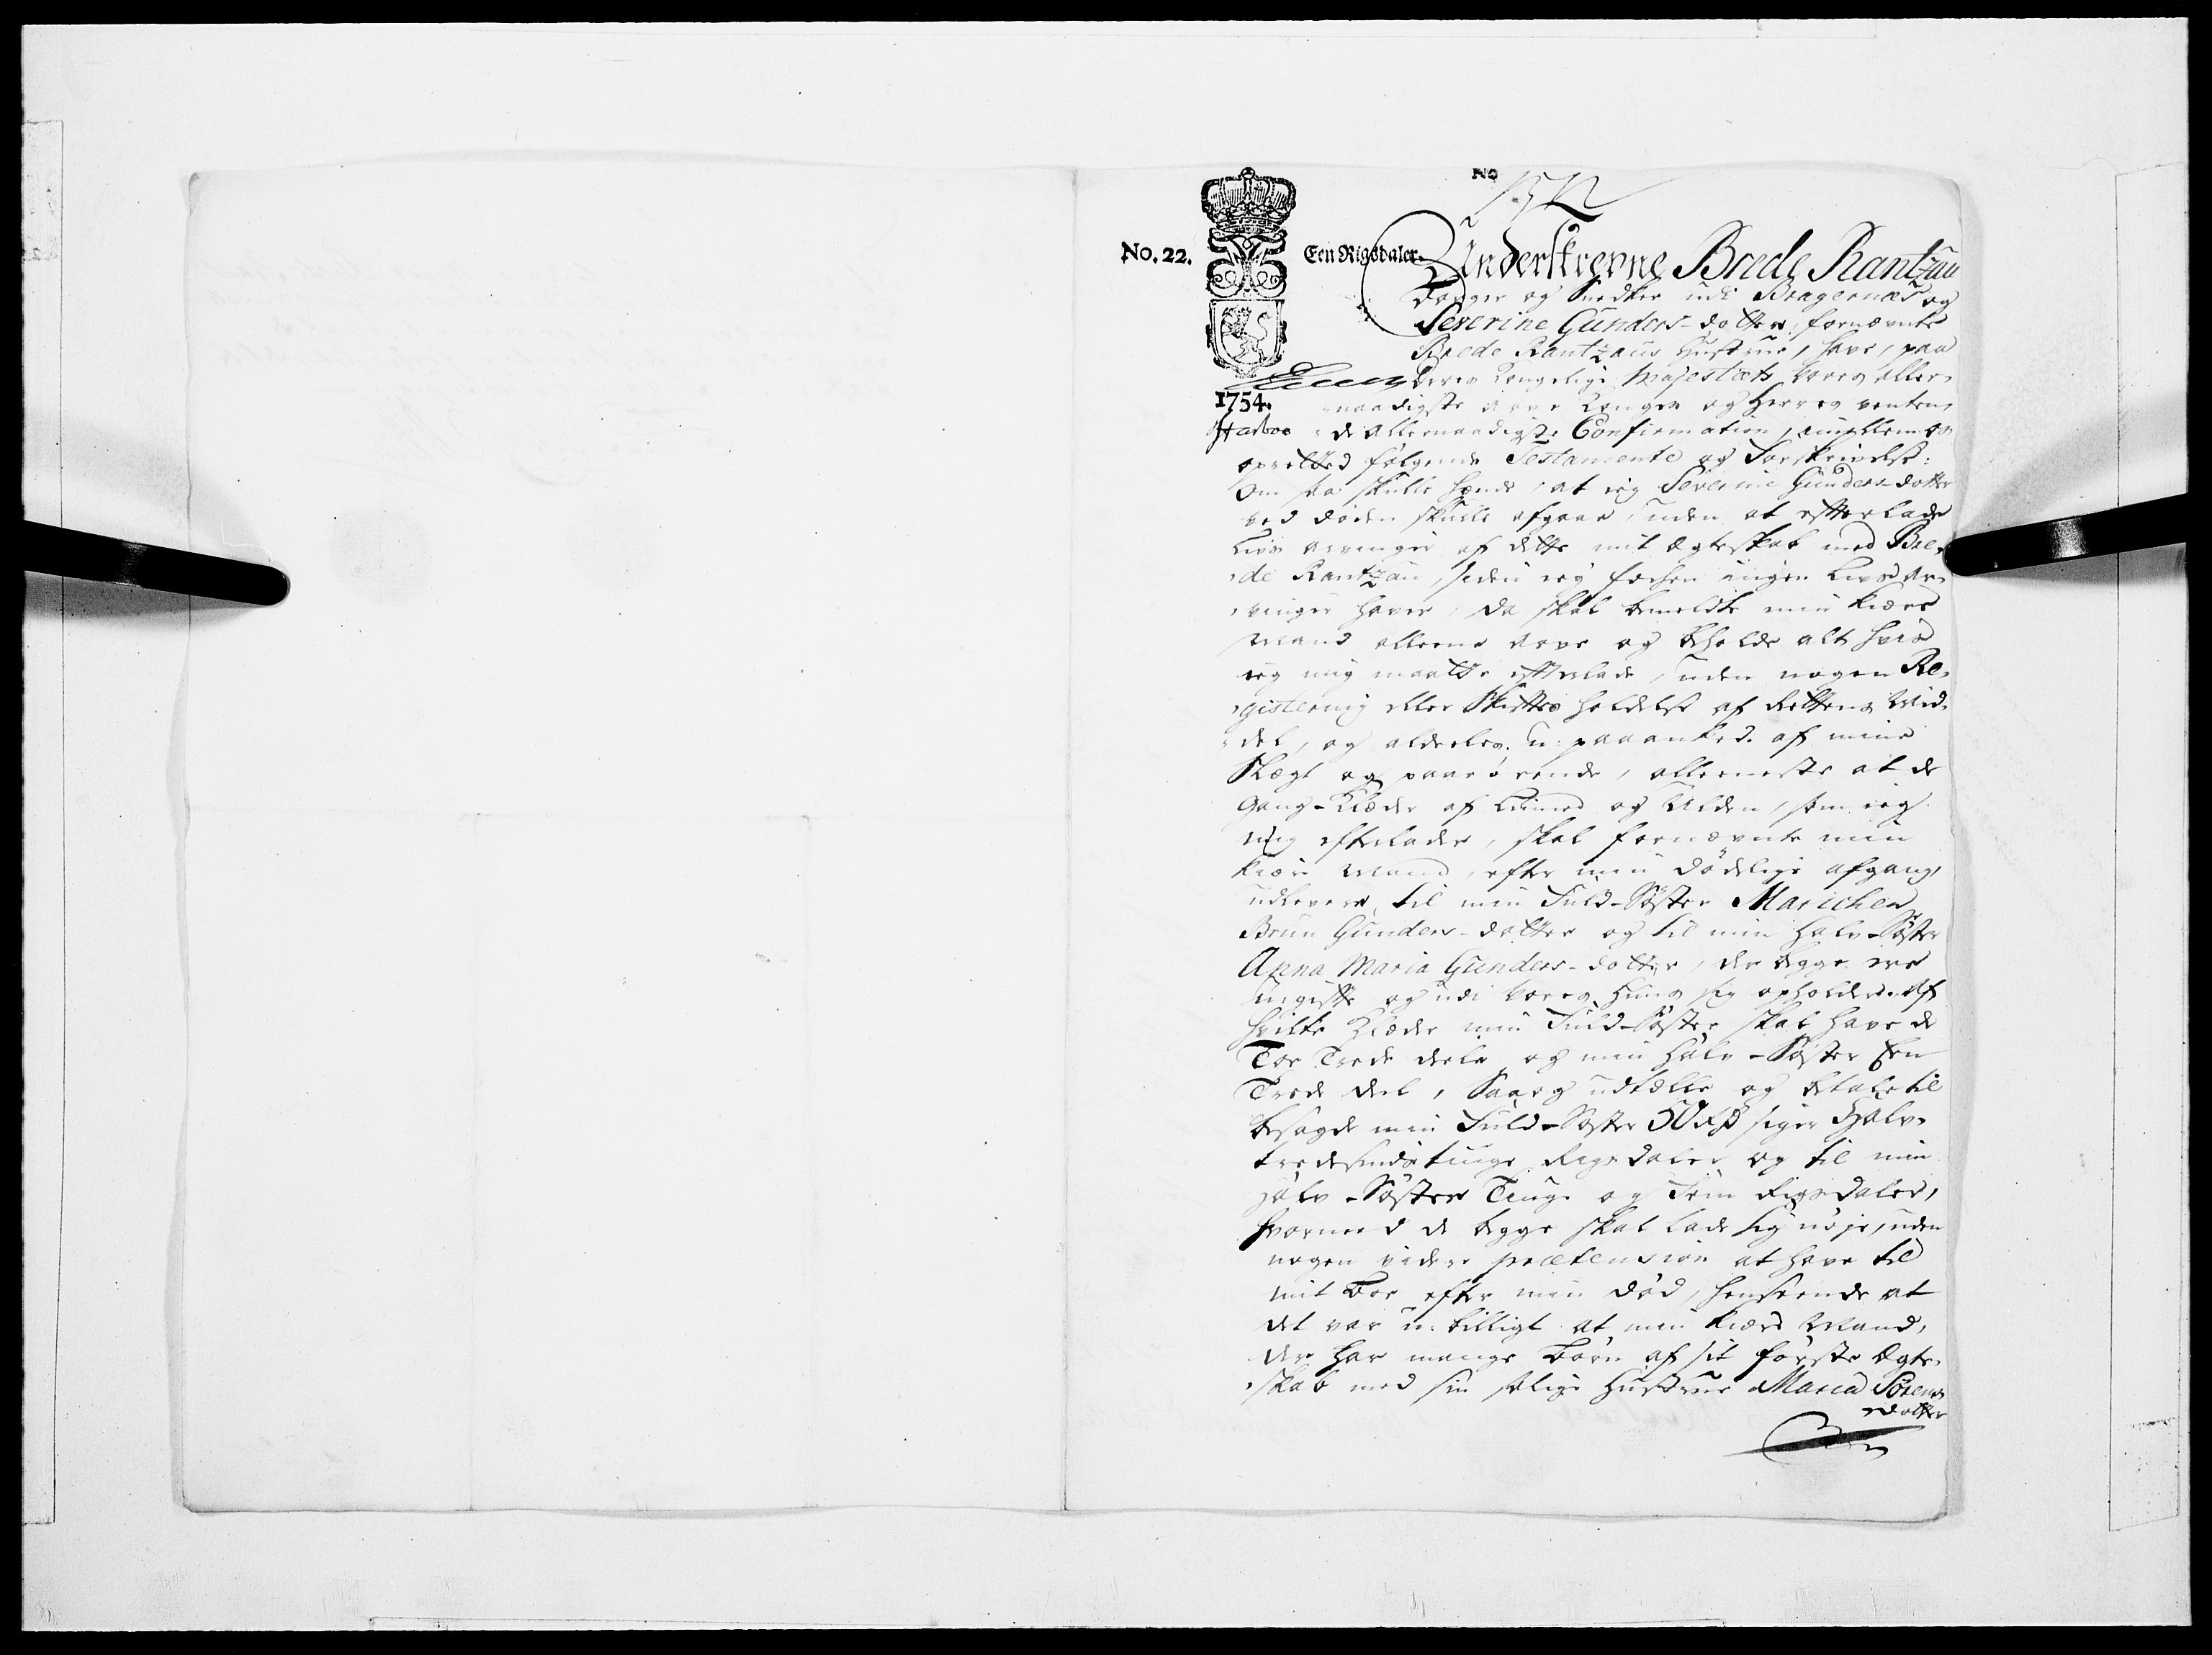 No
No. 22.
Een Rigsdaler.
Underskrevne Brede Rantzau
Borger og Snedker udi Bragernæs og
Severine Gunders-dotter, fornævnte
Brede Rantzaus Hustrue, have, paa
Deres Kongelige Majestæts vores aller-
1754.
naadigste Arve Konges og Herres venten-
Harboe
de Allernaadigste Confirmation, imellem os
opretted følgende Testamente og Forskrivelse:
Om saa skulle hænde, at ieg Severine Gunders-dotter
ved døden skulle afgaae, uden at efterlade
Livs Arvinger af dette mit Ægteskab med Bre-
de Rantzau, siden ieg forhen ingen Livs Ar-
vinger haver, da skal bemeldte min kiære
Mand alleene arve og beholde alt hvis
ieg mig maatte efterlade, uden nogen Re-
gistering eller Skiftes holdelse af Rettens Mid-
del, og aldeeles u-paaanked af mine
Slægt og paarørende, alleeneste at de
Gang-Klæder af Linned og Ulden, som ieg
mig efterlader, skal fornævnte min
kiære Mand, efter min dødelige afgang,
udlevere til min Fuld-Søster Marichen
Brun Gunders-dotter og til min Halv-Søster
Anna Maria Gunders-dotter, der begge ere
ugifte og udi vores Huus sig opholder. Af
hvilke Klæder min Fuld-Søster skal have de
Toe Trede deele og min Halv-Søster Een
Trede deel, Saa og udtælle og betale til
besagde min Fuld-Søster 50 Rd siger Halv-
tredsindstiuge Rigsdaler og til min
Halv-Søster Tiuge og Fem Rigsdaler,
hvormed de begge skal lade sig nøje, uden
nogen videre prætension at have til
mit Boe efter min Død, henseende at
det var u-billigt at min kiære Mand,
der har mange Børn af sit første Ægte-
skab med sin salige Hustrue Maria Sørens
dotter